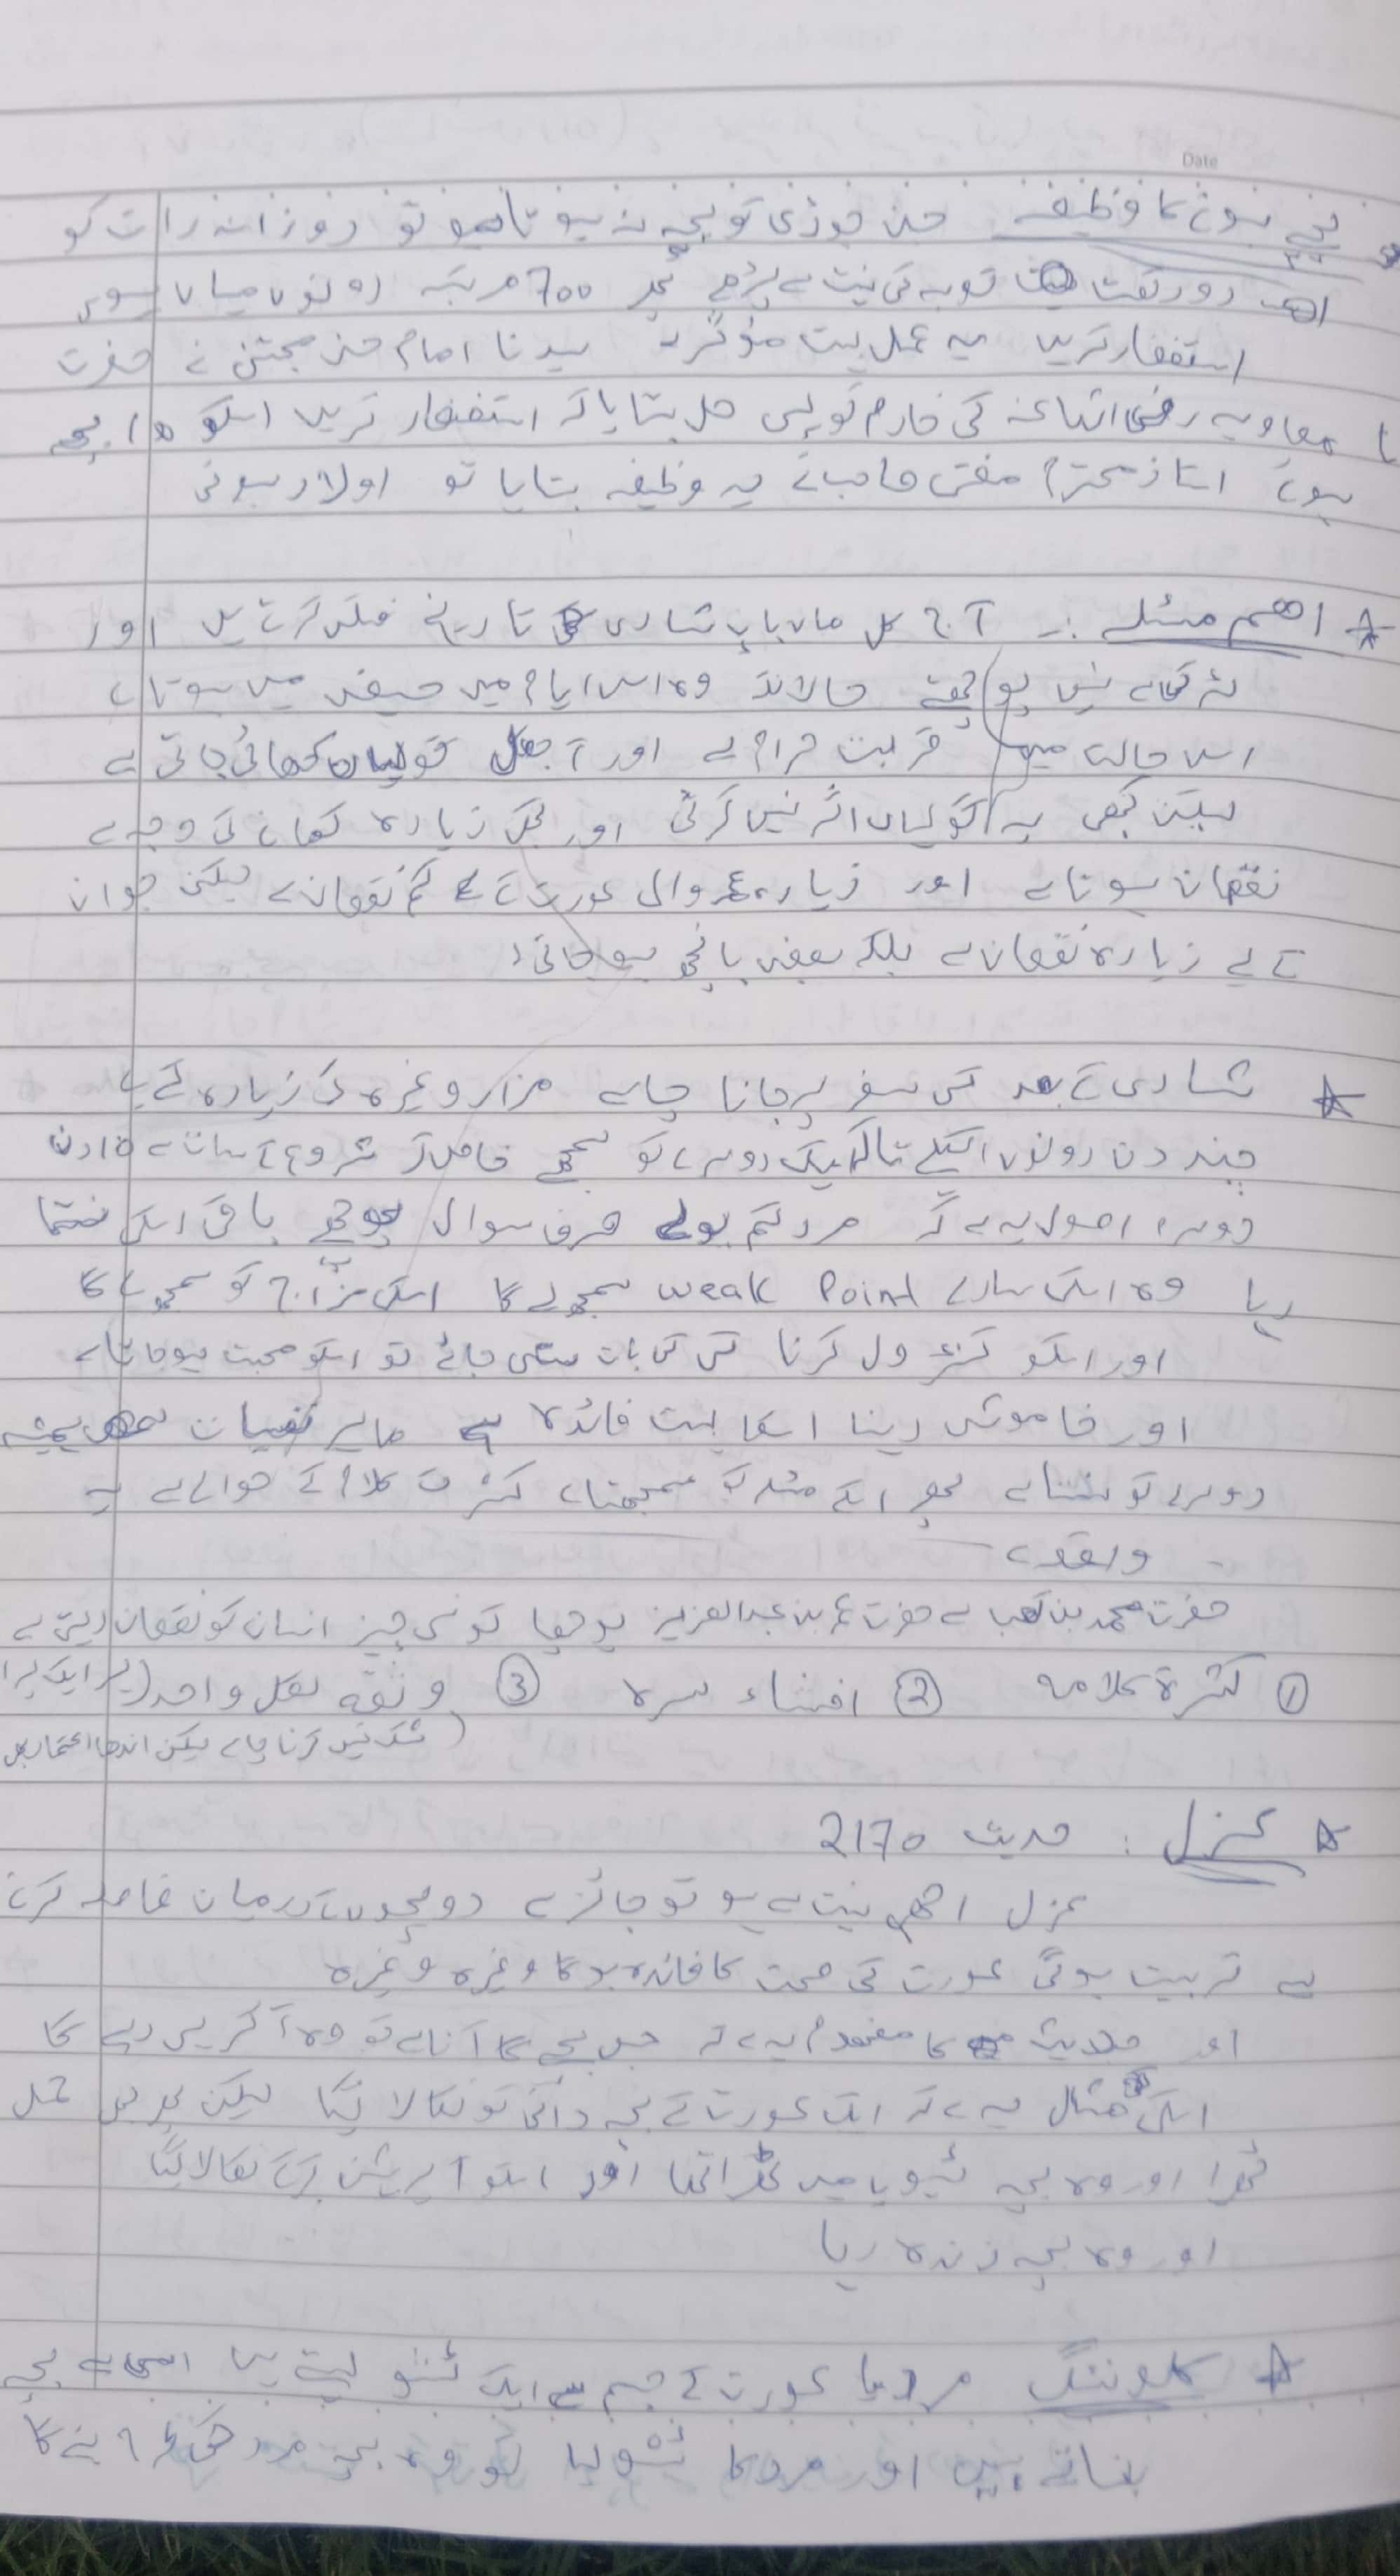 Date
بچے ہونے کا وظیفہ جس جوڑی کو بچہ نہ ہوتا ہو تو روزانہ رات کو
دو رکعت توبہ کی نیت سے پڑھے پھر 700 مرتبہ دونوں میاں بیوی
استغفار کریں یہ عمل بہت مؤثر ہے سیدنا امام حسن مجتبیٰ نے حضرت
معاویہ رضی اللہ عنہ کی خادم کو یہی حل بتایا کہ استغفار کریں اسکو 10 بچے
ہوئے استاذ محترم مفتی صاحب نے یہ وظیفہ بتایا تو اولاد ہوئی
اھم مسئلے :۔ آج کل ماں باپ شادی کی تاریخ فکس کرتے ہیں اور
لڑکی سے نہیں پوچھتے حالانکہ وہ اس ایام میں حیض میں ہوتا ہے
اس حالت میں قربت حرام ہے اور آجکل گولیاں کھائی جاتی ہے
لیکن کبھی یہ گولیاں اثر نہیں کرتی اور زیادہ کھانے کی وجہ سے
نقصان ہوتا ہے اور زیادہ عمر والی عورت کے لئے کم نقصان ہے لیکن جوان
کے لیے زیادہ نقصان ہے بلکہ بعض بانجھ ہو جاتی
شادی کے بعد کسی سفر پر جانا چاہیے مزار وغیرہ کی زیارہ کے لیے
چند دن دونوں اکیلے تاکہ ایک دوسرے کو سمجھے خاص کر شروع کے سات سے 10 دن
دوسرا اصول یہ ہے کہ مرد کم بولے صرف سوال پوچھے باقی اسکی سنتا
رہا وہ اسکی سارے weak Point سمجھ لے گا اسکی مزاج کو سمجھے گا
اور اسکو کنٹرول کرنا کسی کی بات سنی جائے تو اسکو محبت ہو جاتا ہے
اور خاموشی رہنا اسکا بہت فائدہ ہے ماہر نفسیات ہمیشہ
دوسرے کو سنتا ہے پھر اسکے مسئلہ کو سمجھتا ہے کثرت کلام کے حوالے سے یہ
واقعہ ہے
حضرت محمد بن کعب سے حضرت عمر بن عبدالعزیز پوچھا کونسی چیز انسان کو نقصان دیتی ہے
① کثرۃ کلامہ ② افشاء سرہ ③ وثقہ بکل واحد (ہر ایک پر
شک نہیں کرنا چاہیے لیکن اندھا اعتماد بھی
عزل : حدیث 2170
عزل اچھی نیت سے ہو تو جائز ہے دو بچوں کے درمیان فاصلہ کرنے
سے تربیت ہوگی عورت کی صحت کا فائدہ ہوگا وغیرہ وغیرہ
اور حدیث کا مفہوم یہ ہے کہ جس بچے کا آنا ہے تو وہ آ کر ہی رہے گا
اسکی مثال یہ ہے کہ ایک عورت کے بچہ دانی کو نکالا گیا لیکن پھر بھی حمل
ٹھہرا اور وہ بچہ ٹیوب میں ٹھہرا تھا اور اسکو آپریشن کرکے نکالا گیا
اور وہ بچہ زندہ رہا
کلوننگ مرد یا عورت کے جسم سے ایک ٹشو لیتے ہیں اس سے بچہ
بناتے ہیں اور مرد کا ٹشو لیا تو وہ بچہ مرد کی بنے گا